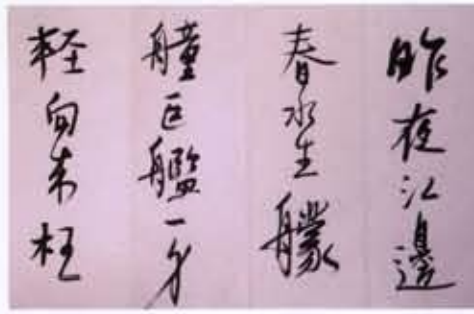 昨夜江邊
春水生艨
艟巨艦一身
軽向来枉